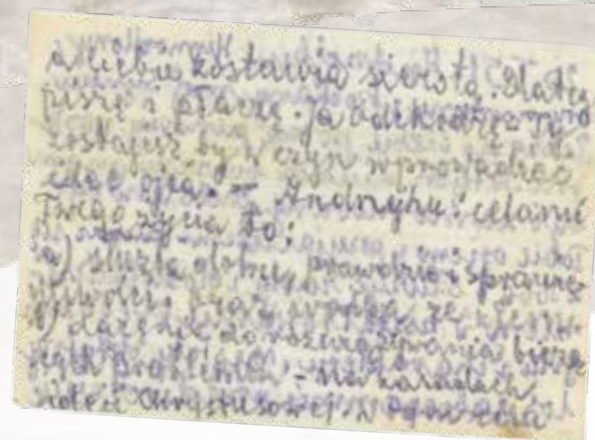 a Ciebie zostawią sierotą. Dlateg
piszę i płaczę. Ja odchodzę – Ty
zostajesz by w czyn wprowadzać
idee ojca. – Andrzejku! celami
Twego życia to:
a) służba dobru, prawdzie i sprawie
dliwości oraz walka ze złem
b) dążenie do rozwiązywania bieżą
cych problemów – na zasadach
idei Chrystusowej.